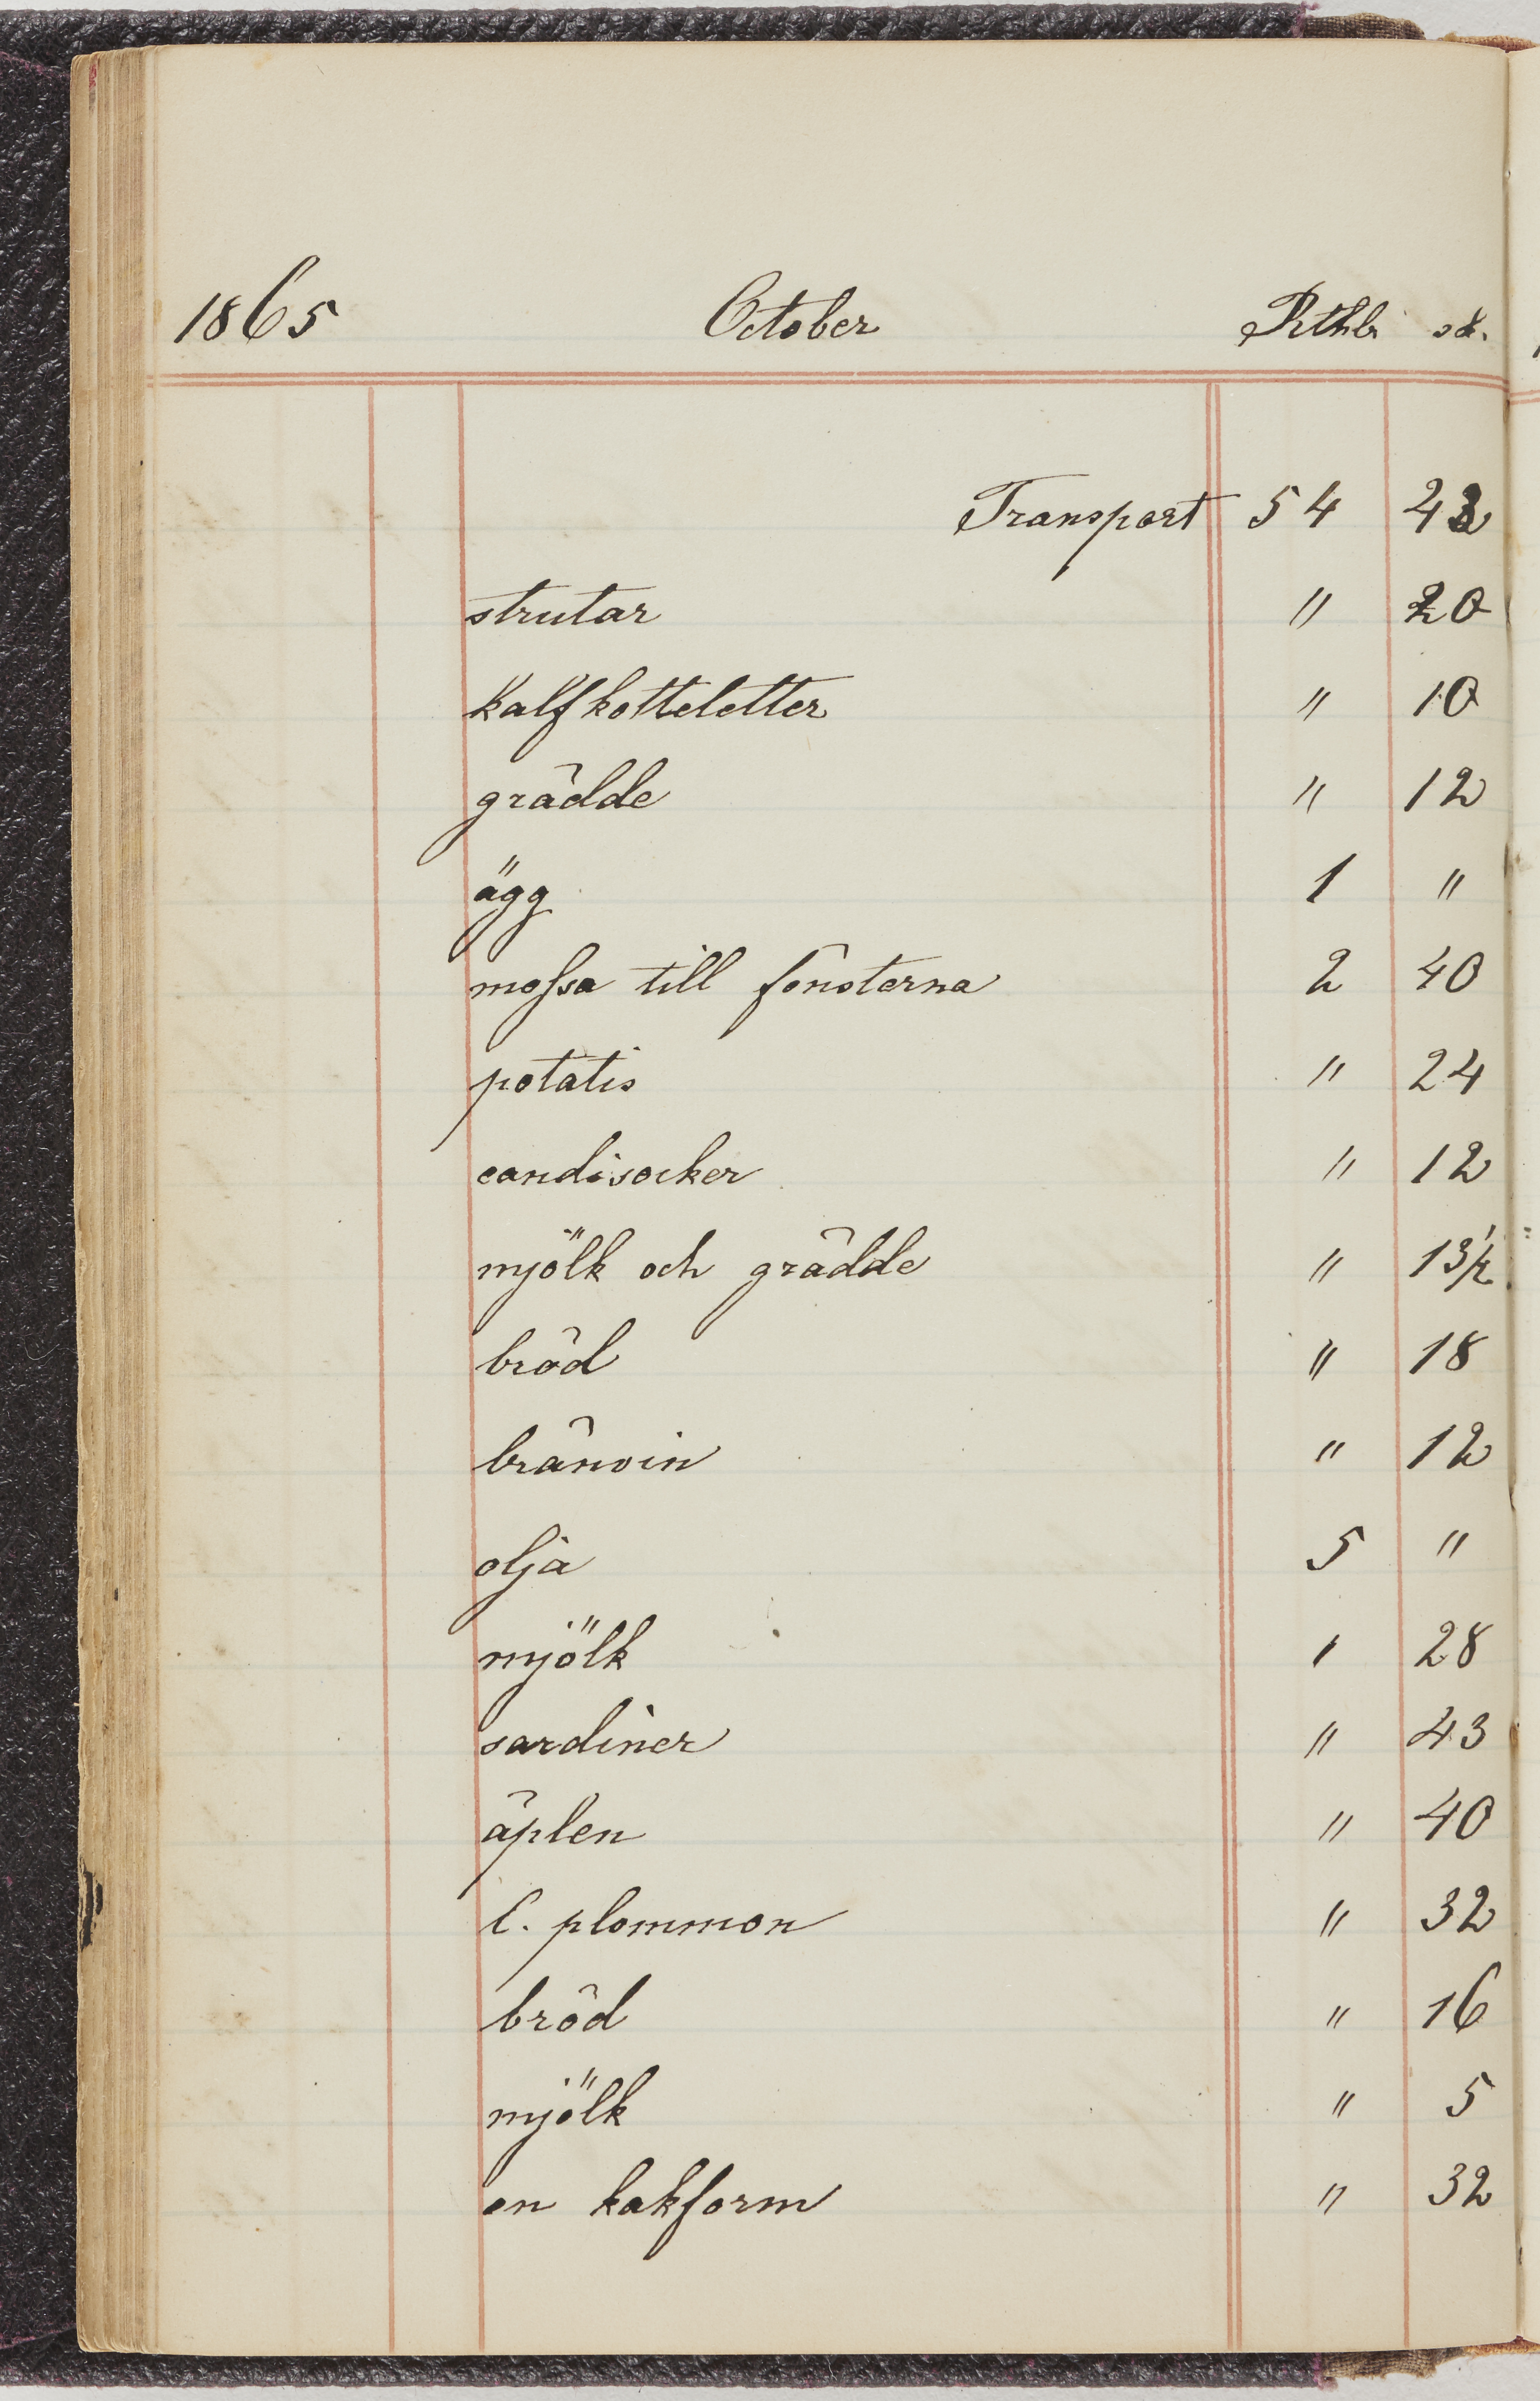 1865 October Rthlr sk.
Transport 54
strutar " 20
kalfkotteletter " 10
grädde " 12
ägg 1 "
mossa till fönsterna 2 40
potatis " 24
candisocker " 12
mjölk och grädde " 13½
bröd " 18
bränvin " 12
olja 5 "
mjölk 1 28
sardiner " 43
äplen " 40
C. plommon " 32
bröd " 16
mjölk " 5
en kakform " 32